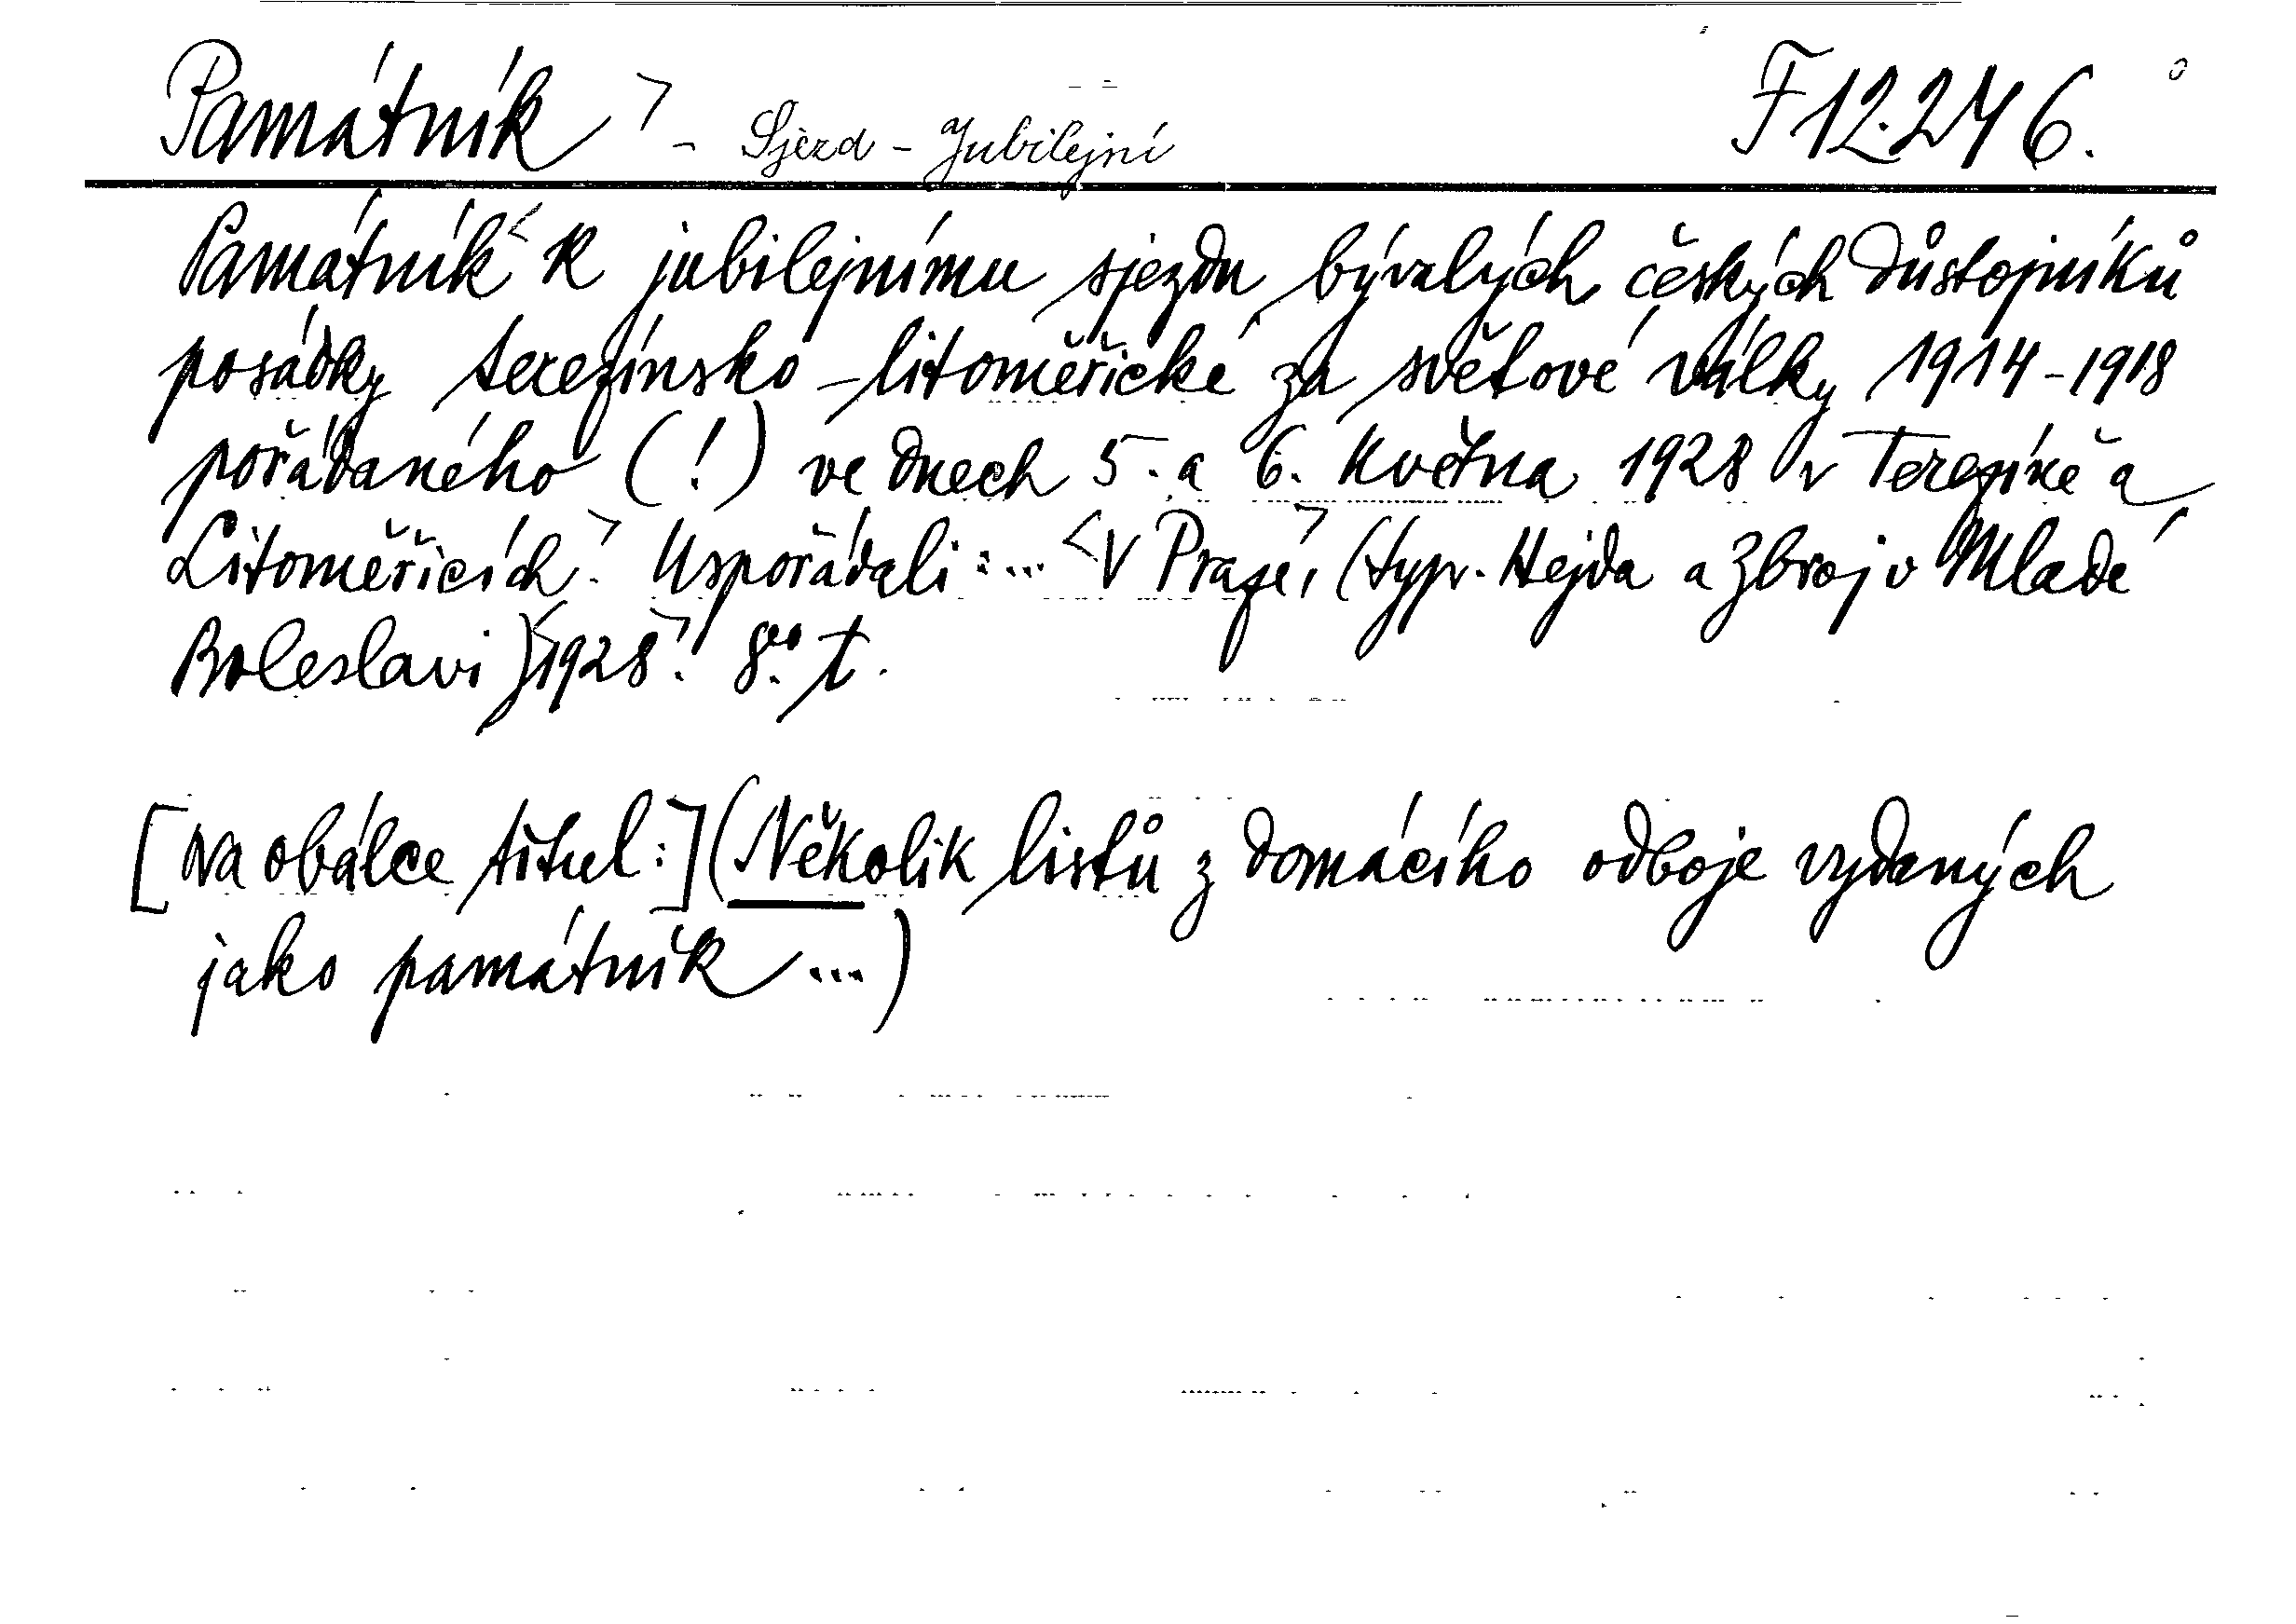 Památník - Sjezd - Jubilejní F 12.246.
Památník k jubilejnímu sjezdu bývalých českých důstojníků
posádky terezínsko-litoměřické za světové války 1914-1918
pořádaného (!) ve dnech 5. a 6. května 1928 v Terezíně a
Litoměřicích. Uspořádali:... V Praze, (typr. Hejda a Zbroj v Mladé
Boleslavi) 1928. 8° t.
[Na obálce titul:] (Několik listů z domácího odboje vydaných
jako památník ...)